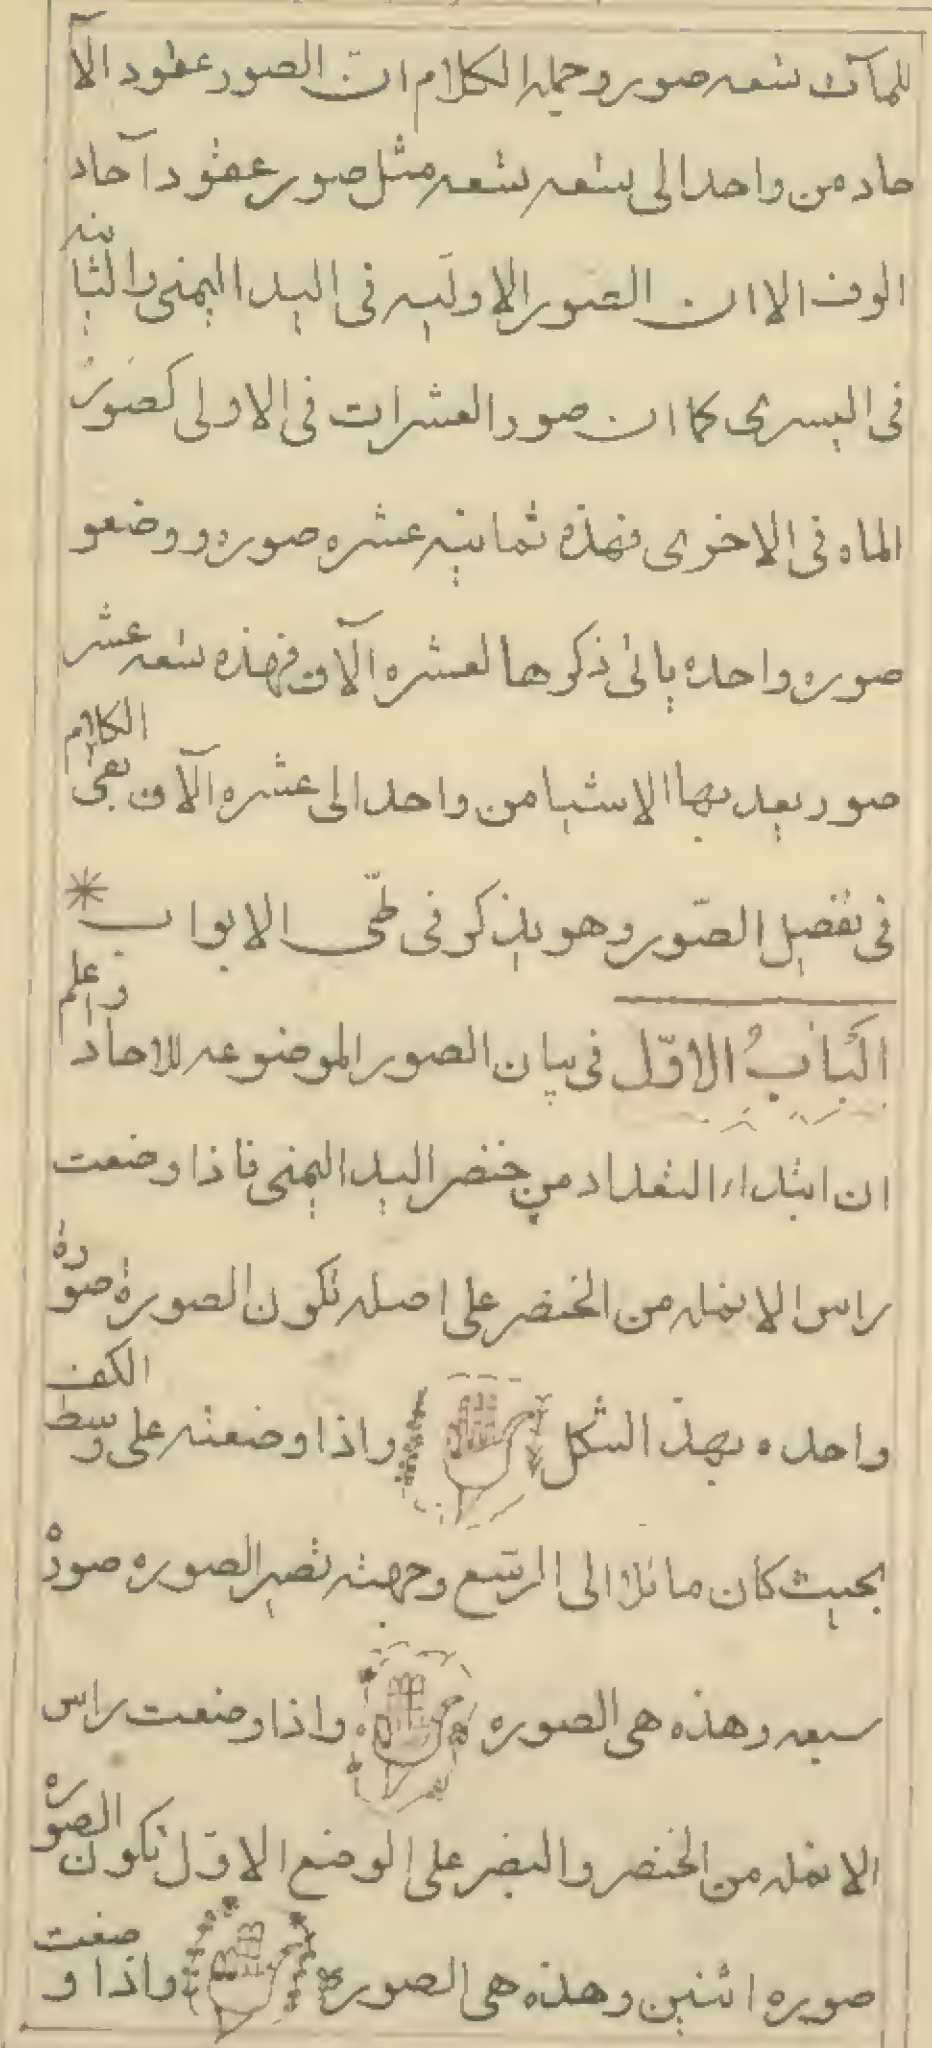 للمآت تسعه صور وجمله الكلام ان الصور عقود الآ
حاد من واحد الى تسعه تسعه مثل صور عقود آحاد
الوف الا ان الصور الاوليه فى اليد اليمنى والثانيه
فى اليسرى كما ان صور العشرات فى الاولى كصور
الماه فى الاخرى فهذه ثمانيه عشره صوره ووضعو
صوره واحده ياتى ذكرها لعشره آلاف فهذه تسعه عشر
صور يعد بها الاشيا من واحد الى عشره آلاف بقى الكلام
فى تفصيل الصّور وهو يذكر فى طىّ الابواب *
الباب الاوّل فى بيان الصور الموضوعه للاحاد واعلم
ان ابتداء التعداد من خنصر اليد اليمنى فاذا وضعت
راس الانمله من الخنصر على اصله تكون الصورة صورة
واحده بهذ الشكل واذا وضعته على وسط الكف
بحيث كان مائلا الى الرسغ وجهته تصير الصوره صورة
سبعه وهذه هى الصوره واذا وضعت راس
الانمله من الخنصر والبنصر على الوضع الاوّل تكون الصورة
صوره اثنين وهذه هى الصوره واذا وضعت